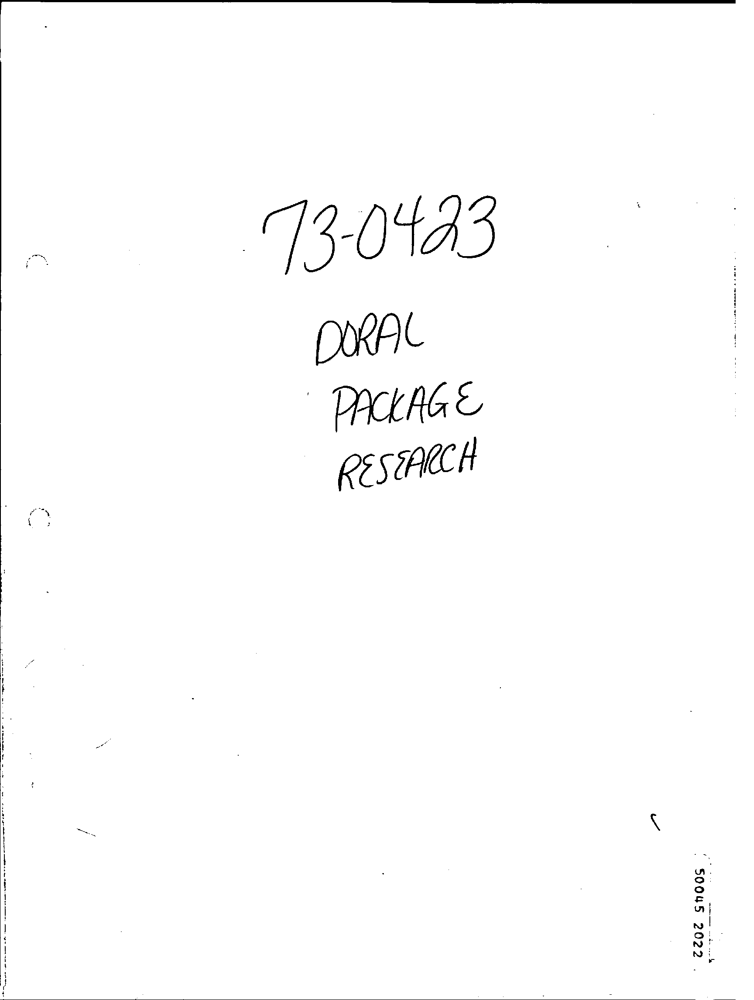 73-0423
DORAL
PACKAGE
RESEARCH
50045 2022